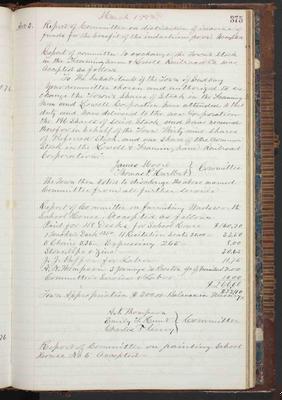 March 1882
375
Art 2. Report of Committee on distribution of income of
funds for the benefit of the
Report of committee to exchange the Town's Stock
in the Framingham & Lowell Railroad Co. was
Accepted as follows
To The Inhabitants of the Town of Sudbury
Your committee chosen and authorized to ex
change the Town's shares of Stock in the Framing
ham and Lowell Corporation have attended to that
duty and have delivered to the new Corporation
the 116 Shares of said Stock, and have received
therefor in behalf of the Town Thirty nine shares
of Preferred Stock and one share of the Common
Stock in the "Lowell & Framingham Railroad
Corporation"
James Moore
Thomas P. Hurlbut } Committee
The Town then voted to discharge the above named
Committee from all further service
Report of Committee on furnishing Wadsworth
School House Accepted as follows
Paid for 48 Desks for School House $160.20
1 Teachers Desk 4 Recitation Seats
6 Chairs Expressing 2.65 9.00
Stove Pipe & Zinc
for Labor
A. N. Thompson 3 journeys to Boston
Committee's Services & Labor
Town Appropriation $300.00 Balance in Treasury
A. N. Thompson
Emily F. Hunt
Charles } Committee
Report of Committee on painting School
House No 5 Accepted